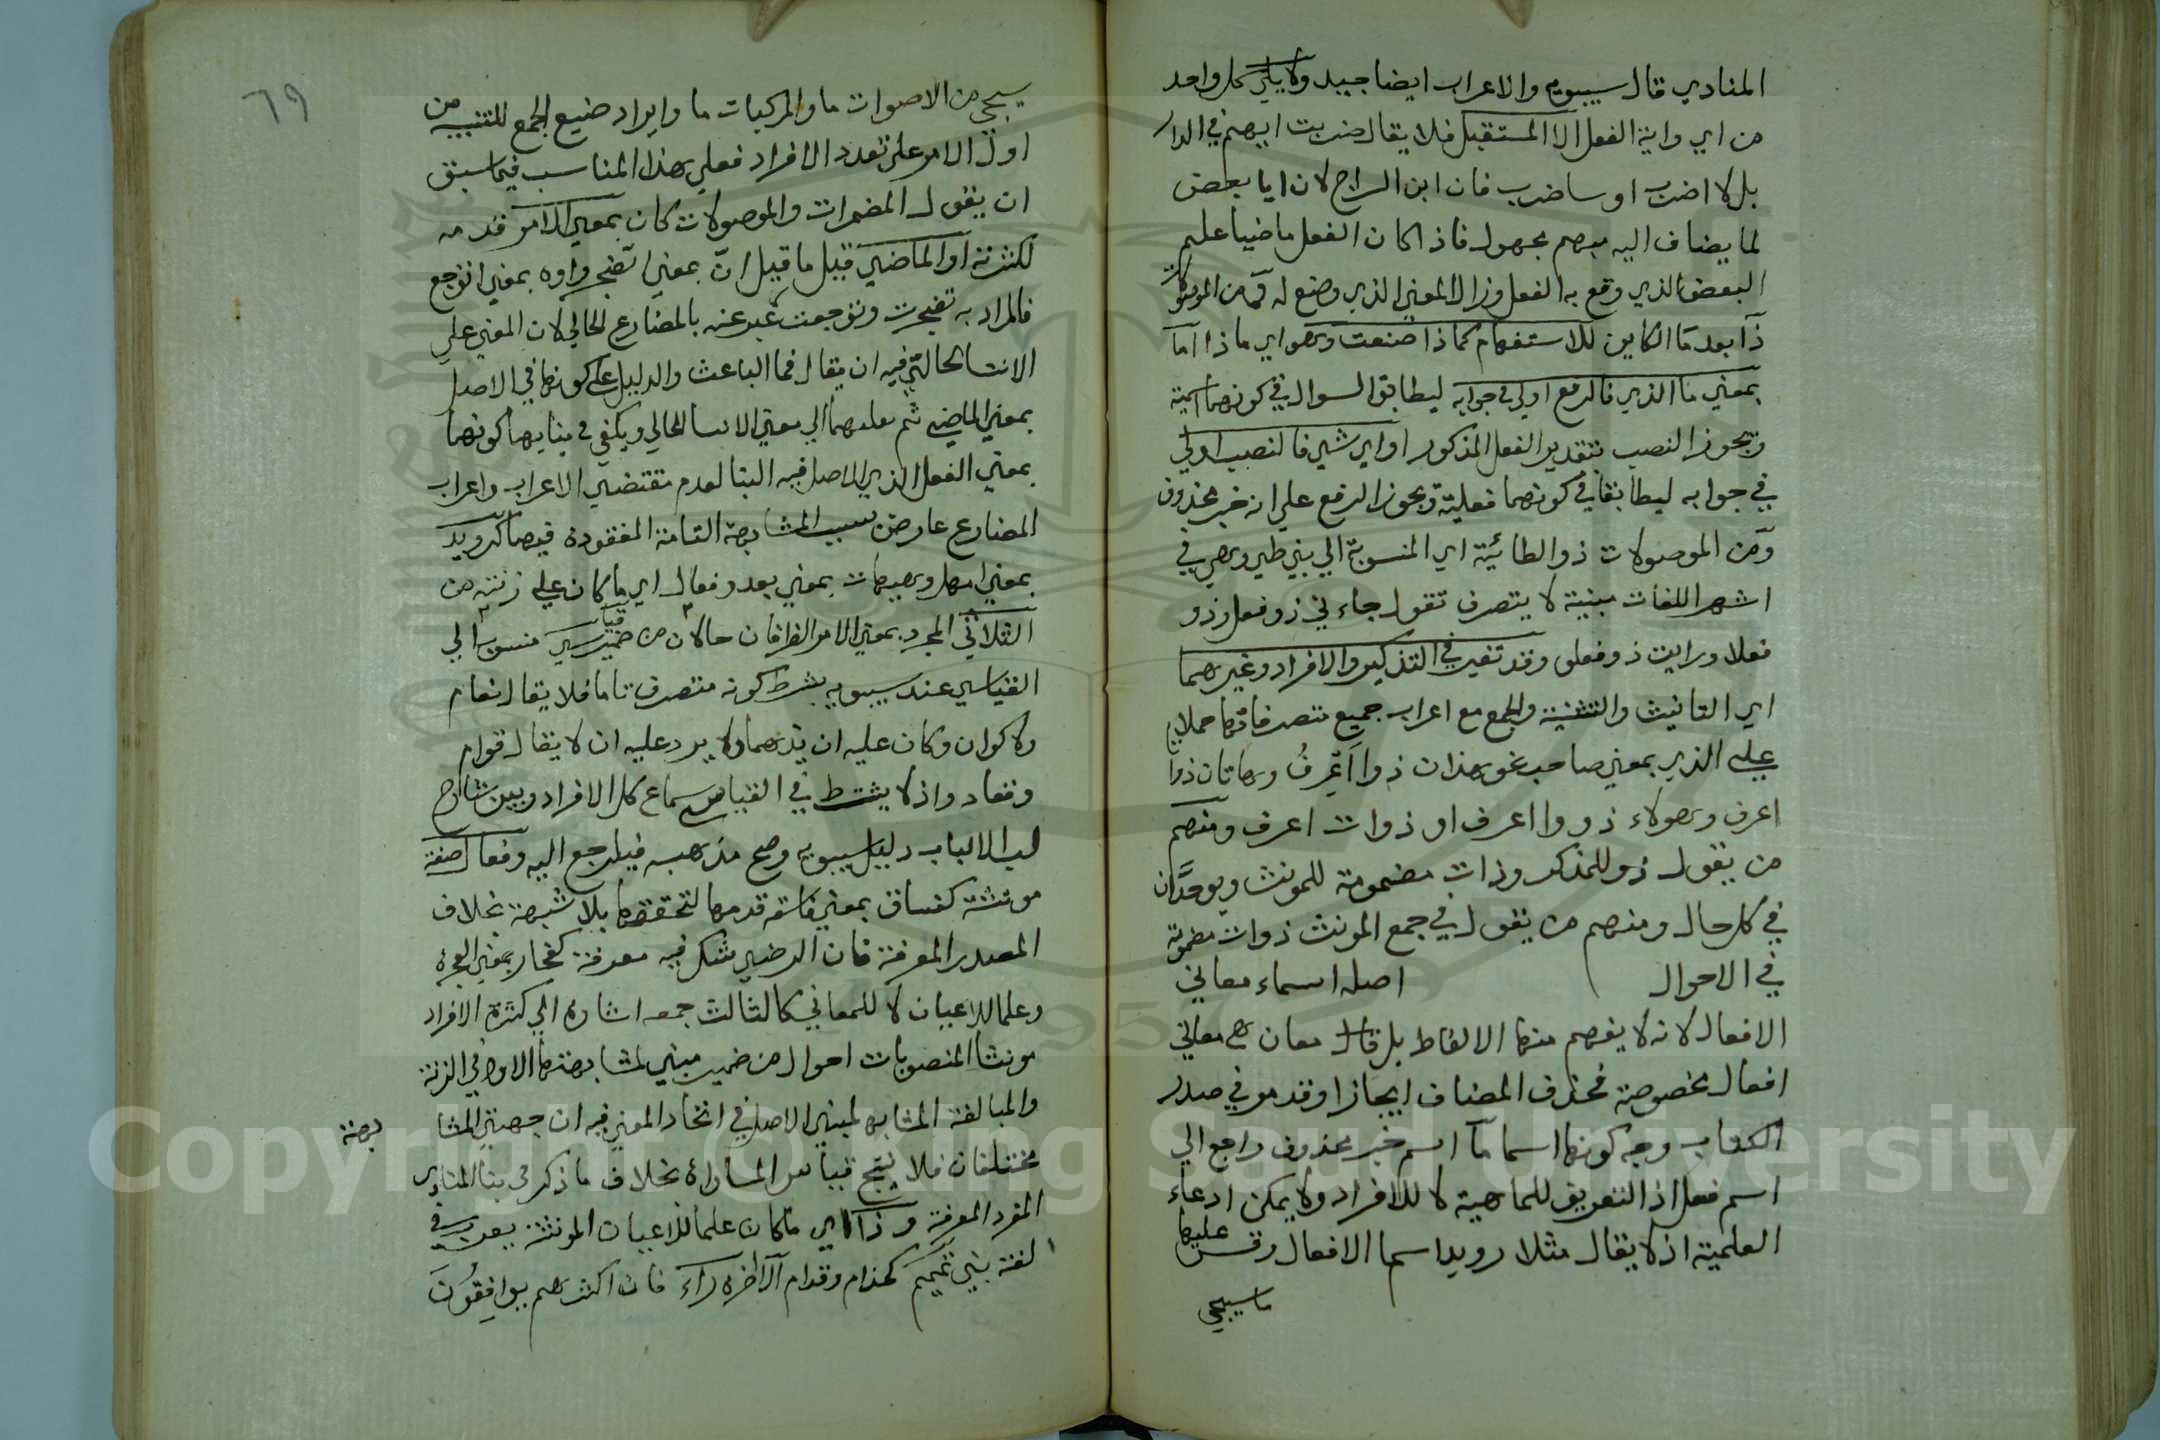 المنادي قال سيبويه والاعراب ايضا جيد ولا يلي كل واحد
من اي واية الفعل الا المستقبل فلا يقال ضربت ايهم في الدار
بل لا اضرب او ساضرب فان ابن السراج لان ايا بعض
لما يضاف اليه مبهم مجهول فاذا كان الفعل ماضيا علم
البعض الذي وقع به الفعل وزال المعني الذي وضع له ومن الموصولات
ذا بعد ما الكاين للاستفهام كماذا صنعت وهو اي ماذا اما
بمعني ما الذي فالرفع اولي في جوابه ليطابق السوال في كونهما اسمية
ويجوز النصب بتقدير الفعل المذكور او اي شي فالنصب اولي
في جوابه ليطابقا في كونهما فعلية ويجوز الرفع علي انه خبر محذوف
ومن الموصولات ذو الطائية اي المنسوبة الي بني طي وهي في
اشهر اللغات مبنية لا يتصرف تقول جاءني ذو فعل وذو
فعلا ورايت ذو فعلو وقد تغير في التذكير والافراد وغيرهما
اي التانيث والتثنية والجمع مع اعراب جميع متصرفاتها حملا
علي الذي بمعني صاحب نحو هذان ذوا اعرف وهاتان ذوا
اعرف وهولاء ذووا اعرف او ذوات اعرف ومنهم
من يقول ذو للمذكر وذات مضمومة للمونث ويوحدان
في كل حال ومنهم من يقول في جمع المونث ذوات مضمومة
في الاحوال اصله اسماء معاني
الافعال لانه لا يفهم منها الالفاظ بل قال معان هي معاني
افعال مخصوصة فحذف المضاف ايجازا وقد مر في صدر
الكتاب وجه كونها اسما ما اسم خبر محذوف راجع الي
اسم فعل اذ التعريف للماهية لا للافراد ولا يمكن ادعاء
العلمية اذ لا يقال مثلا رويد اسما الافعال وقس عليها
ما سيجي
٦٩
سيجي من الاصوات ما والمركبات ما وايراد صنيع الجمع للتنبيه من
اول الامر علي تعدد الافراد فعلي هذا المناسب فيما سبق
ان يقول المضمرات والموصولات كان بمعني الامر قدمه
لكثرته او الماضي قيل ما قيل ان بمعني اتضجر واوه بمعني اتوجع
فالمراد به تضجرت وتوجعت عبر عنه بالمضارع الحالي لان المعني علي
الانشا الحالي فيه ان يقال فما الباعث والدليل علي كونها في الاصل
بمعني الماضي ثم نقلهما الي معني الانشا الحالي ويكفي في بنايهما كونهما
بمعني الفعل الذي الاصل فيه البنا لعدم مقتضي الاعراب واعراب
المضارع عارض بسبب المشابهة التامة المفقودة فيها كرويد
بمعني امهل وهيهات بمعني بعد وفعال اي ما كان علي زنته من
الثلاثي المجرد بمعني الامر الظرفان حالان من ضمير قياسي منسوب الي
القياس عند سيبويه بشرط كونه متصرف تاما فلا يقال نعام
ولا كوان وكان عليه ان يذكرهما ولا يرد عليه ان لا يقال قوام
وقعاد واذ لا يشترط في القياس سماع كل الافراد وبين شارح
لب الالباب دليل سيبويه وصحح مذهبه فليرجع اليه وفعال صفة
مونثة كفساق بمعني فاسقة قدمها لتحققها بلا شبهة بخلاف
المصدر المعرفة فان الرضي شكك فيه معرفة كفجار بمعني الفجرة
وعلما للاعيان لا للمعاني كالثالث جمعه اشارة الي كثرة الافراد
مونثا المنصوبات احوال من ضمير مبني لمشابهتها الاول في الزنة
والمبالغة المشابه لمبني الاصل في اتحاد المعني فيه ان جهتي المشا
بهة
مختلفان فلا ينتج قياس المساواة بخلاف ما ذكر في بنا المنادي
المفرد المعرفة وذا اي ما كان علما للاعيان المونثة يعرب في
لغة بني تميم كحذام وقدام الا ما اخره راء فان اكثرهم يوافقون
Copyright © King Saud University
1957